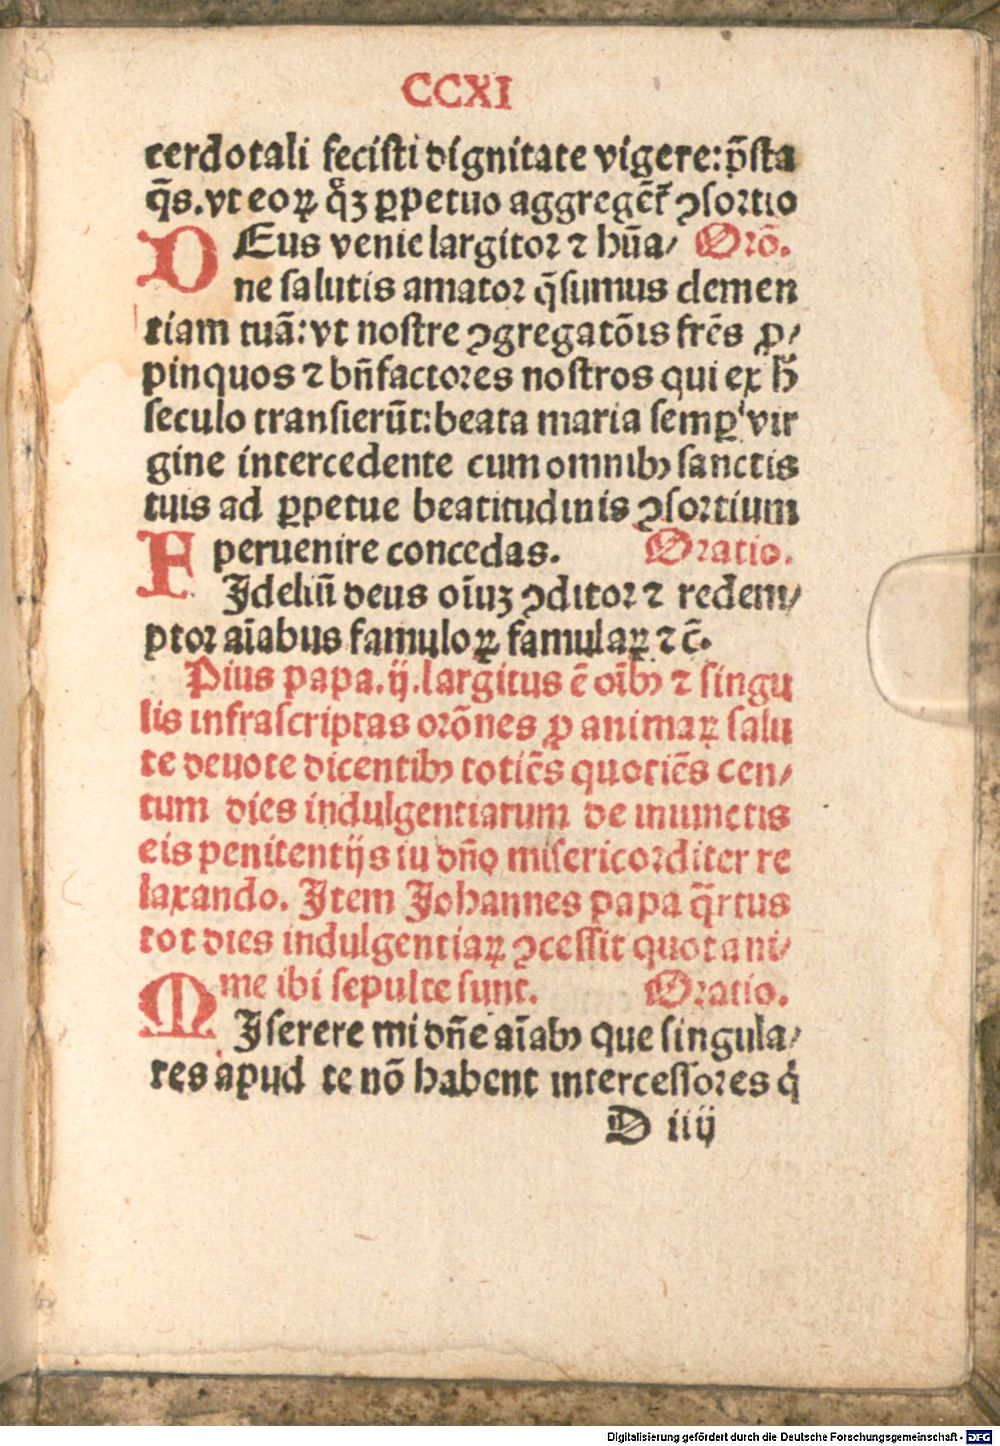 CCXI
cerdotali fecisti dignitate vigere: p̄sta
q̄s. vt eoꝝ q̊ꝫ ꝑpetuo aggregēt᷑ ꝯsortio
DEus venie largitor ⁊ hūa/ Orō.
ne salutis amator q̄sumus clemen
tiam tuā: vt nostre ꝯgregatōis frēs ꝓ/
pinquos ⁊ bn̄factores nostros qui ex h̄
seculo transierūt: beata maria semꝑ vir
gine intercedente cum omnibꝰ sanctis
tuis ad ꝑpetue beatitudinis ꝯsortium
peruenire concedas. Oratio.
FIdeliū deus oīuꝫ ꝯditor ⁊ redem/
ptor aīabus famuloꝝ famulaꝝ ⁊ c̄.
Pius papa. ij. largitus ē oībꝰ ⁊ singu
lis infrascriptas orōnes ꝓ animaꝝ salu
te deuote dicentibꝰ totiēs quotiēs cen/
tum dies indulgentiarum de iniunctis
eis penitentijs in dn̄o misericorditer re
laxando. Item Johannes papa q̄rtus
tot dies indulgentiaꝝ ꝯcessit quot ani/
me ibi sepulte sunt. Oratio.
MIserere mi dn̄e aīabꝰ que singula/
res apud te nō habent intercessores q̇
D iiij
Digitalisierung gefördert durch die Deutsche Forschungsgemeinschaft - DFG